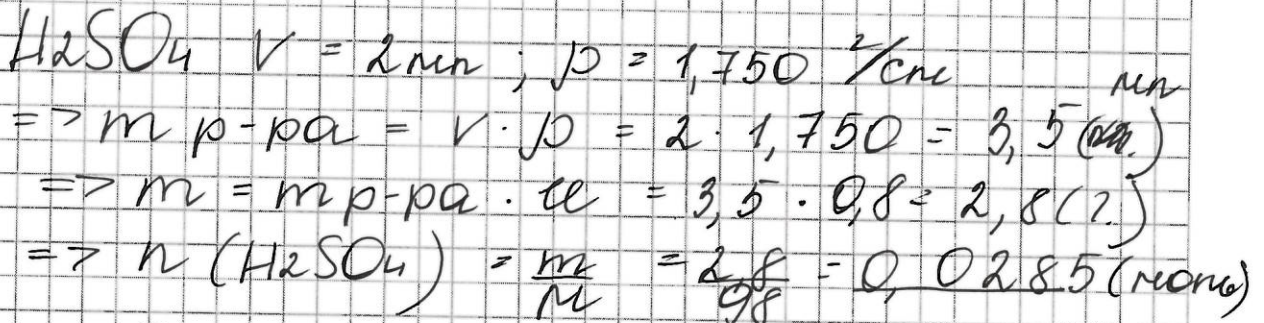 H2SO4 V = 2 мл ; ρ = 1,750 г/см
=> m р-ра = V · ρ = 2 · 1,750 = 3,5 (мл)
=> m = m р-ра · ω = 3,5 · 0,8 = 2,8 (г.)
=> n (H2SO4) = m/M = 2,8/98 = 0,0285 (моль)